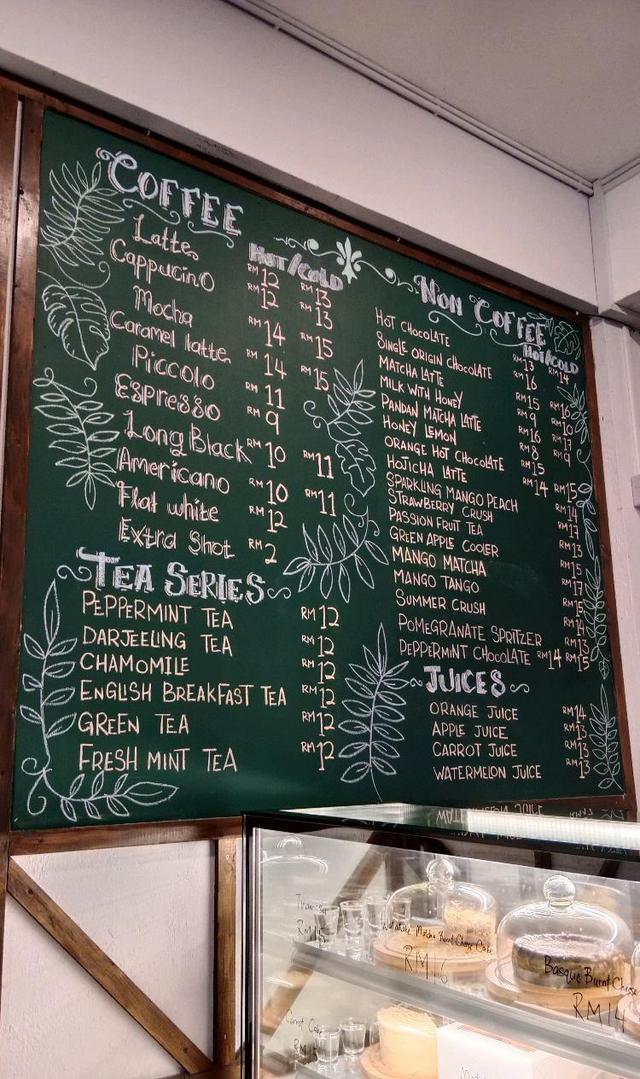 COFFEE
HOT/COLD
Latte RM12 RM13
Cappucino RM12 RM13
Mocha RM14 RM15
Caramel latte RM14 RM15
Piccolo RM11
Espresso RM9
Long Black RM10 RM11
Americano RM10 RM11
Flat white RM12
Extra Shot RM2
TEA SERIES
PEPPERMINT TEA RM12
DARJEELING TEA RM12
CHAMOMILE RM12
ENGLISH BREAKFAST TEA RM12
GREEN TEA RM12
FRESH MINT TEA RM12
NON COFFEE
HOT/COLD
HOT CHOCOLATE RM13 RM14
SINGLE ORIGIN CHOCOLATE RM16
MATCHA LATTE RM15 RM16
MILK WITH HONEY RM9 RM10
PANDAN MATCHA LATTE RM16 RM17
HONEY LEMON RM8 RM9
ORANGE HOT CHOCOLATE RM15
HOJICHA LATTE RM14 RM15
SPARKLING MANGO PEACH RM14
STRAWBERRY CRUSH RM17
PASSION FRUIT TEA RM13
GREEN APPLE COOLER RM15
MANGO MATCHA RM17
MANGO TANGO RM15
SUMMER CRUSH RM14
POMEGRANATE SPRITZER RM13
PEPPERMINT CHOCOLATE RM14 RM15
JUICES
ORANGE JUICE RM14
APPLE JUICE RM13
CARROT JUICE RM13
WATERMELON JUICE RM13
Matcha Burnt Cheese Cake
RM16
Basque Burnt Cheese
RM14
Carrot Cake